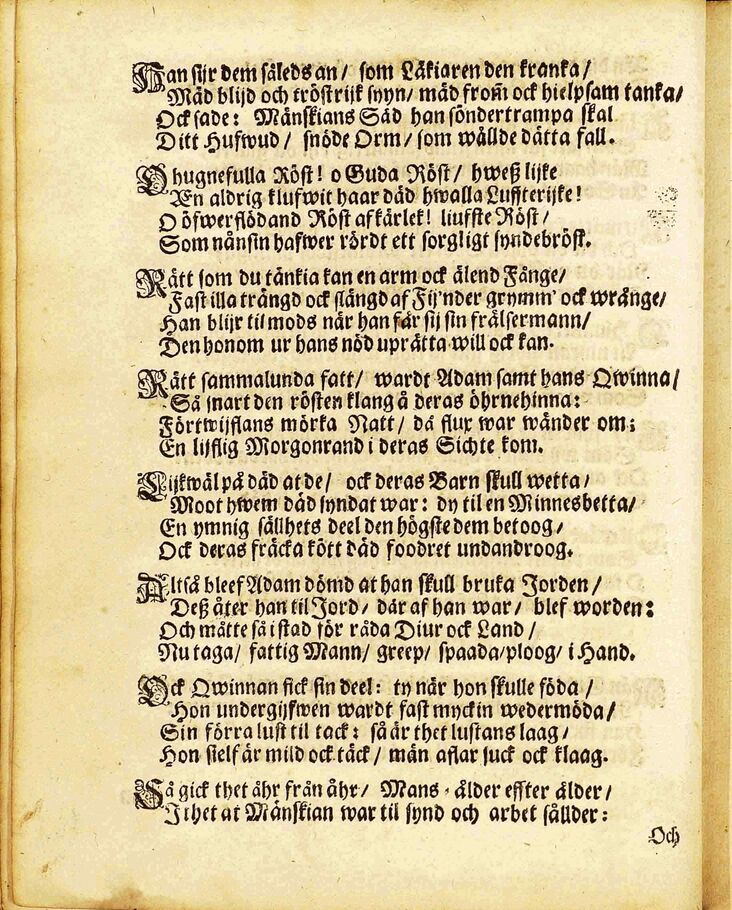 Han sijr dem såleds an/ som Läkiaren den kranka/
Mäd blijd och tröstrijk syyn/ mäd from̃ ock hielpsam tanka/
Ock sade: Mänskians Säd han söndertrampa skal
Ditt Hufwud/ snöde Orm/ som wållde dätta fall.
O hugnefulla Röst! o Guda Röst/ hweß lijke
Æn aldrig klufwit haar däd hwalla Luffterijke!
O öfwerflödand Röst af kärlek! liufste Röst/
Som nånsin hafwer rördt ett sorgligt syndebröst.
Rätt som du tänkia kan en arm ock älend Fånge/
Fast illa trängd ock slängd af Fij'nder grymm' ock wrånge/
Han blijr til mods när han får sij sin frälsermann/
Den honom ur hans nöd uprätta will ock kan.
Rätt sammalunda fatt/ wardt Adam samt hans Qwinna/
Så snart den rösten klang å deras öhrnehinna:
Förtwijflans mörka Natt/ då flux war wänder om;
En lijflig Morgonrand i deras Sichte kom.
Lijkwäl på däd at de/ ock deras Barn skull wetta/
Moot hwem däd syndat war: dy til en Minnesbetta/
En ymnig sällhets deel den högste dem betoog/
Ock deras fräcka kött däd foodret undandroog.
Altså bleef Adam dömd at han skull bruka Jorden/
Deß åter han til Jord/ där af han war/ blef worden:
Och måtte så i stad för råda Diur ock Land/
Nu taga/ fattig Mann/ greep/ spaada/ ploog/ i Hand.
Ock Qwinnan fick sin deel: ty när hon skulle föda/
Hon undergijfwen wardt fast myckin wedermöda/
Sin förra lust til tack: så är thet lustans laag/
Hon sielf är mild ock täck/ män aflar suck ock klaag.
Så gick thet åhr från åhr/ Mans-ålder effter ålder/
J thet at Mänskian war til synd och arbet sållder:
Och